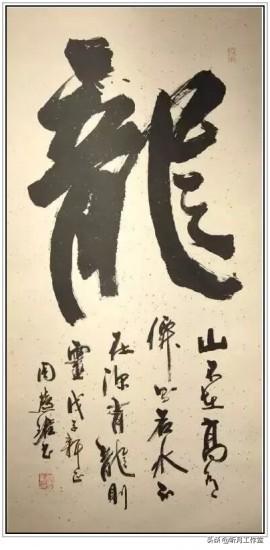 龍
山不在高有
僊則名水不
在深有龍則
靈 戊子新正
周慧珺书
头条@昕月工作室